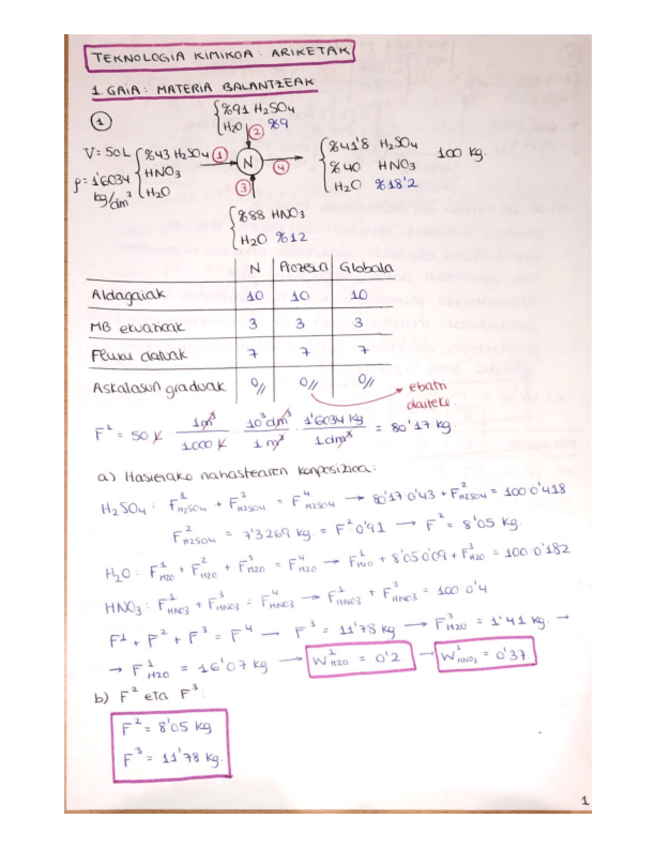 TEKNOLOGIA KIMIKOA: ARIKETAK
1. GAIA: MATERIA BALANTZEAK
①
%91 H₂SO₄
H₂O %9
②
V = 50L
ρ = 1'6034 kg/dm³
%43 H₂SO₄
HNO₃
H₂O
①
N
④
%41'8 H₂SO₄
%40 HNO₃
H₂O %18'2
100 kg.
③
%88 HNO₃
H₂O %12
N Prozesua Globala
Aldagaiak 10 10 10
MB ekuazioak 3 3 3
Fluxu datuak 7 7 7
Askatasun graduak 0// 0// 0//
ebatzi daiteke.
F² = 50 L · 1m³/1000 L · 10³dm³/1 m³ · 1'6034 kg/1dm³ = 80'17 kg.
a) Hasierako nahastearen konposizioa:
H₂SO₄: F¹H2SO4 + F²H2SO4 = F⁴H2SO4 → 80'17·0'43 + F²H2SO4 = 100·0'418
F²H2SO4 = 7'3269 kg. = F²·0'91 → F² = 8'05 kg.
H₂O: F¹H2O + F²H2O + F³H2O = F⁴H2O → F¹H2O + 8'05·0'09 + F³H2O = 100·0'182
HNO₃: F¹HNO3 + F³HNO3 = F⁴HNO3 → F¹HNO3 + F³HNO3 = 100·0'4
F¹ + F² + F³ = F⁴ → F³ = 11'78 kg → F³H2O = 1'41 kg. →
→ F¹H2O = 16'07 kg → W¹H2O = 0'2 → W¹HNO3 = 0'37
b) F² eta F³:
F² = 8'05 kg
F³ = 11'78 kg.
1